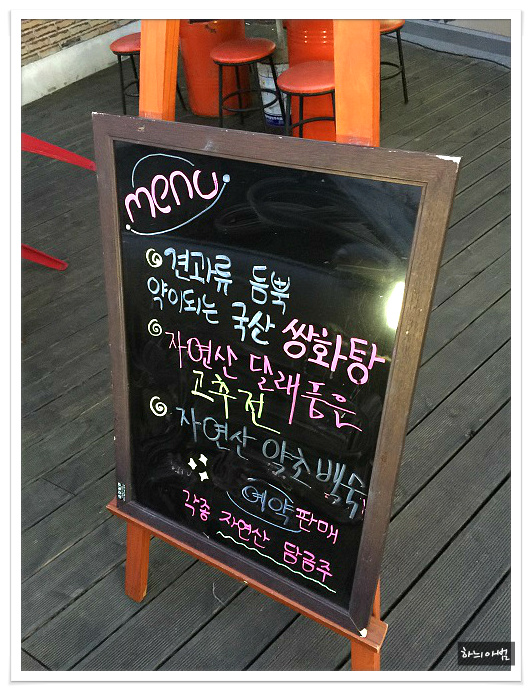 menu
견과류 듬뿍
약이되는 국산 쌍화탕
자연산 달래품은
고추전
자연산 약초백숙
예약판매
각종 자연산 담금주
하늬아범